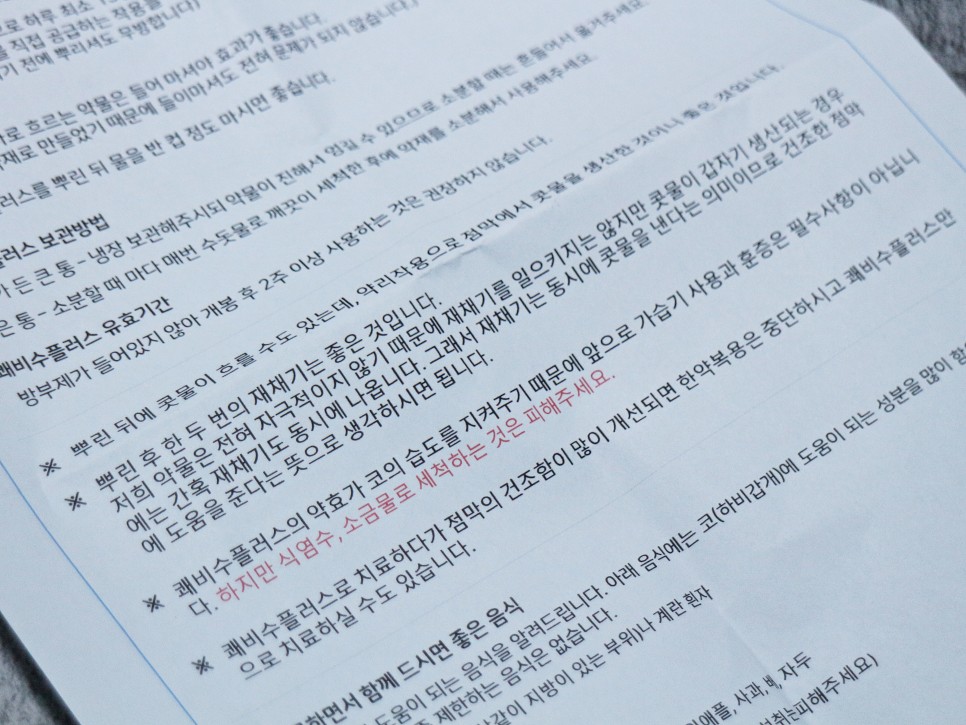 으로 하루 최소
를 직접 공급하는 작용을
기 전에 뿌리셔도 무방합니다)
로 흐르는 약물은 들어 마셔야 효과가 좋습니다.
재로 만들었기 때문에 들이마셔도 전혀 문제가 되지 않습니다.)
러스를 뿌린 뒤 물을 반 컵 정도 마시면 좋습니다.
러스 보관방법
가 든 큰 통 – 냉장 보관해주시되 약물이 진해서 엉길 수 있으므로 소분할 때는 흔들어서 옮겨주세요.
은 통 – 소분할 때 마다 매번 수돗물로 깨끗이 세척한 후에 약재를 소분해서 사용해주세요.
쾌비수플러스 유효기간
방부제가 들어있지 않아 개봉 후 2주 이상 사용하는 것은 권장하지 않습니다.
※ 뿌린 뒤에 콧물이 흐를 수도 있는데, 약리작용으로 점막에서 콧물을 생산한 것이니 좋은 것입니다.
※ 뿌린 후 한 두 번의 재채기는 좋은 것입니다.
저희 약물은 전혀 자극적이지 않기 때문에 재채기를 일으키지는 않지만 콧물이 갑자기 생산되는 경우
에는 간혹 재채기도 동시에 나옵니다. 그래서 재채기는 동시에 콧물을 낸다는 의미이므로 건조한 점막
에 도움을 준다는 뜻으로 생각하시면 됩니다.
※ 쾌비수플러스의 약효가 코의 습도를 지켜주기 때문에 앞으로 가습기 사용과 훈증은 필수사항이 아닙니
다. 하지만 식염수, 소금물로 세척하는 것은 피해주세요.
※ 쾌비수플러스로 치료하다가 점막의 건조함이 많이 개선되면 한약복용은 중단하시고 쾌비수플러스만
으로 치료하실 수도 있습니다.
하면서 함께 드시면 좋은 음식
도움이 되는 음식을 알려드립니다. 아래 음식에는 코(하비갑개)에 도움이 되는 성분을 많이 함
제한하는 음식은 없습니다.
살같이 지방이 있는 부위)나 계란 흰자
인애플, 사과, 배, 자두
섭취는 피해주세요)